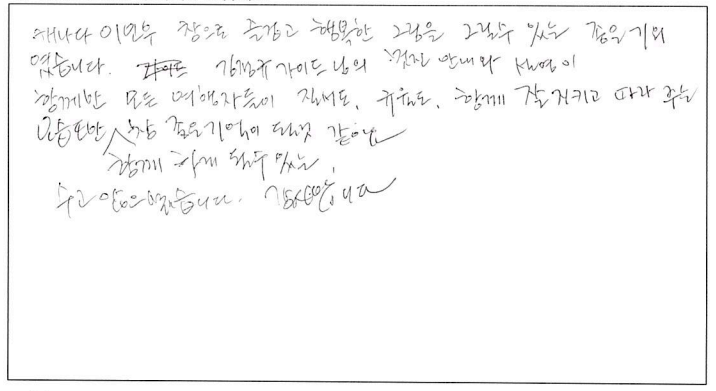 캐나다 이민우 참으로 즐겁고 행복한 그림을 그릴수 있는 좋은 기회
였습니다. 가이드 김정규 가이드님의 멋진 안내와 설명이
함께한 모든 여행자들이 질서도, 규율도, 함께 잘 지키고 따라 주는
모습 또한 참 좋은 기억이 될것 같아요
함께 하게 될수 있는,
수고 많으셨습니다. 감사합니다